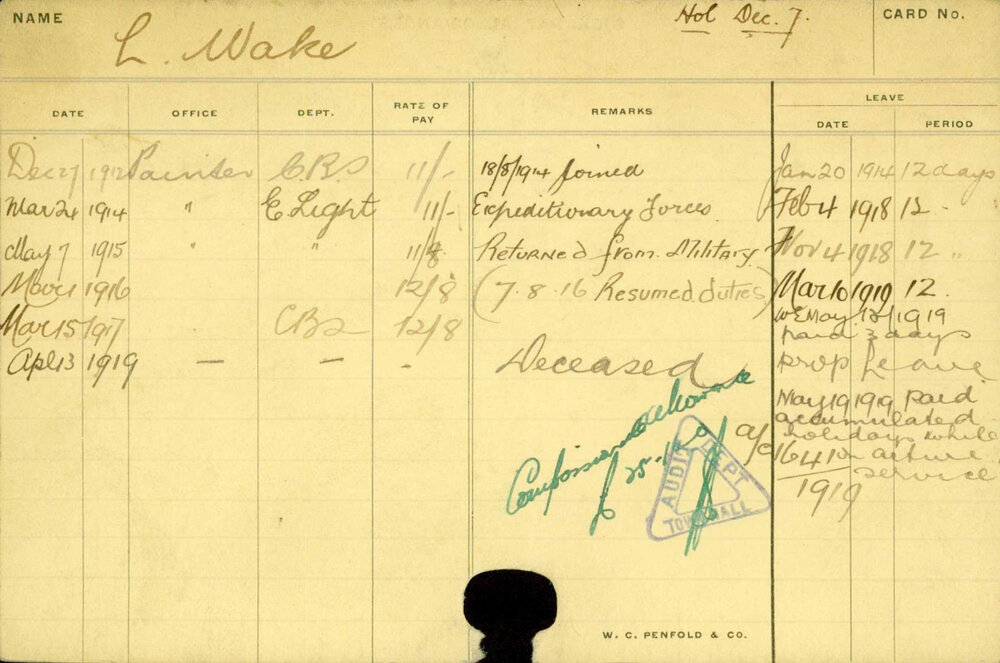 NAME L. Wake Hol Dec. 7. CARD No.
DATE OFFICE DEPT. RATE OF PAY REMARKS LEAVE
DATE PERIOD
Dec 27 1912 Painter C.B.S 11/- 18/8/1914 joined Jan 20 1914 12 days
Mar 24 1914 " E Light 11/- Expeditionary Forces. Feb 4 1918 12 - "
May 7 1915 " " 11/8 Returned from Military Nov 4 1918 12 "
1916 12/8 (7.8.16 Resumed duties) Mar 10 1919 12.
Mar 15 1917 CBS 12/8 WE May 1919
paid 3 days
Apl 13 1919 — — - Deceased prop Leave
May 19 1919 Paid
accumulated
holidays while
on active
service
Compassionate Allowance
£
a/c 1641
1919
AUDIT DEPT TOWN HALL
W. C. PENFOLD & CO.